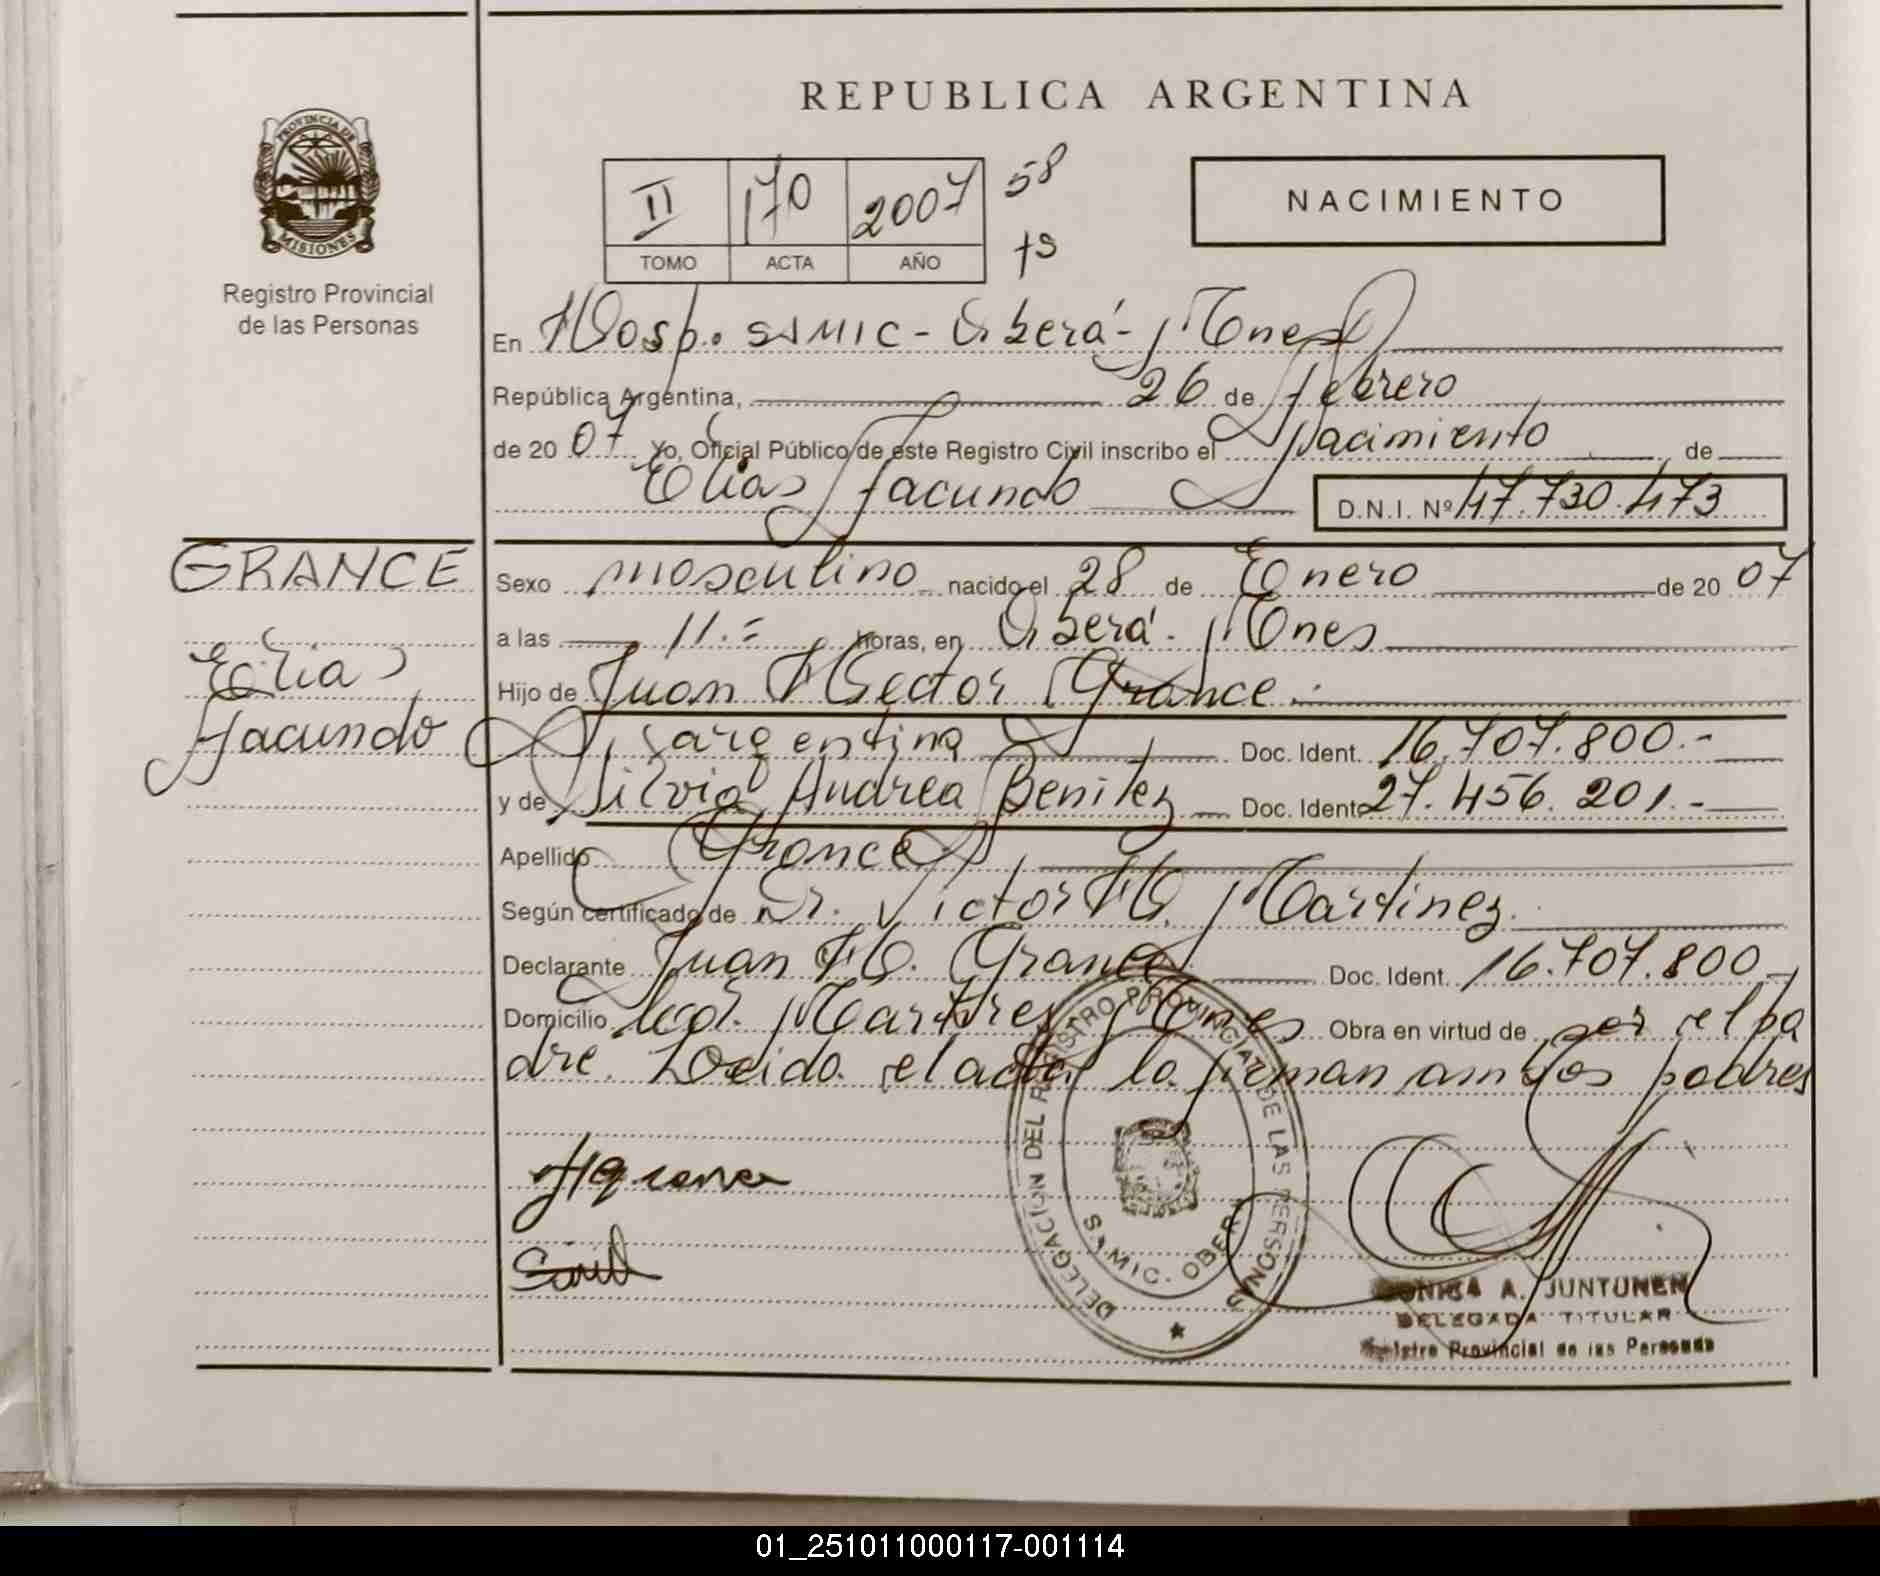 REPUBLICA ARGENTINA
PROVINCIA DE MISIONES
Registro Provincial
de las Personas
II 170 2007 58
TOMO ACTA AÑO
NACIMIENTO
En Hosp. SAMIC - Oberá - Mnes
República Argentina, 26 de febrero
de 2007 Yo, Oficial Público de este Registro Civil inscribo el Nacimiento de
Elias Facundo D.N.I. Nº 47.730.473
GRANCE
Elias
Facundo
Sexo masculino nacido el 28 de Enero de 2007
a las 11.= horas, en Oberá. Mnes
Hijo de Juan Hector Grance
argentina Doc. Ident. 16.707.800.-
y de Silvia Andrea Benitez Doc. Ident. 27.456.201.-
Apellido Grance
Según certificado de Dr. Victor H. Martinez.
Declarante Juan H. Grance Doc. Ident. 16.707.800.-
Domicilio Col. Martires Mnes Obra en virtud de ser el pa
dre. Leida el acta la firman ambos padres
DELEGACION DEL REGISTRO PROVINCIAL DE LAS PERSONAS
SAMIC. OBERA
A. JUNTUNEN
DELEGADA TITULAR
Registro Provincial de las Personas
01_251011000117-001114